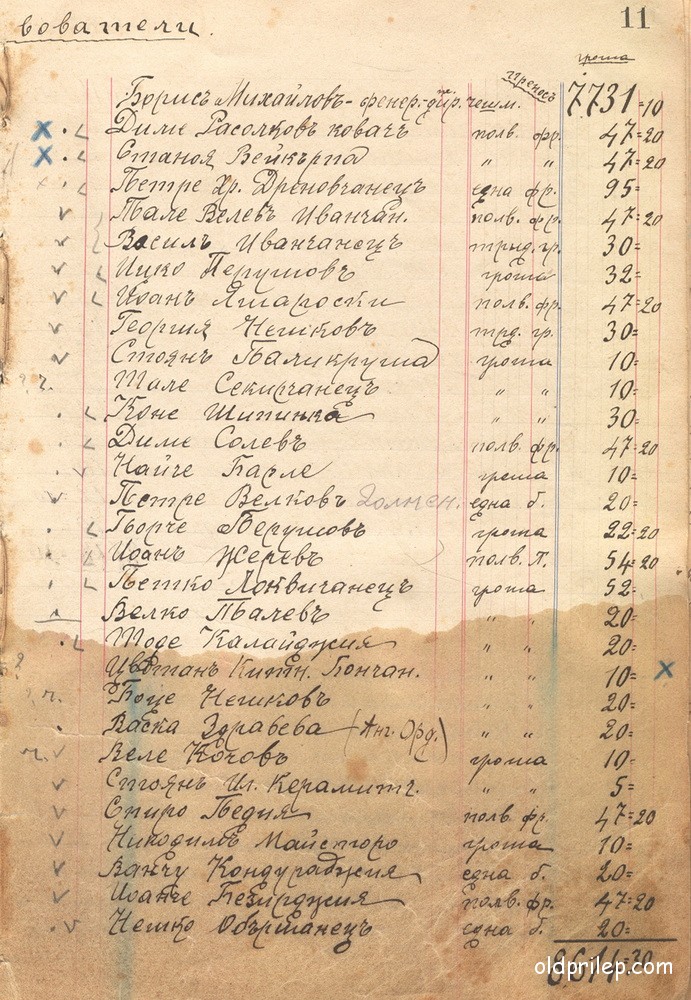 вователи.
11
гроша
Преносъ
Борисъ Михайловъ - фенер. - дир. чешм. 7731=10
Диме Расолковъ ковачъ полв. фр. 47=20
Станоя Вейкърпа " " 47=20
Петре Хр. Дреновчанецъ една фр. 95=
Тале Велевъ Иванчан. полв. фр. 47=20
Василъ Иванчанецъ трид. гр. 30=
Ицко Перушовъ гроша 32=
Иоанъ Ямароски полв. фр. 47=20
Георгия Нешковъ трд. гр. 30=
Стоянъ Паликруша гроша 10=
Тале Секирчанецъ " " 10=
Коне Шипинка " " 30=
Диме Солевъ полв. фр. 47=20
Найче Бахле гроша 10=
Петре Велковъ Долнен. една б. 20=
Ѓорче Перушовъ гроша 22=20
Иоанъ Жеревъ полв. Л. 54=20
Петко Локвичанецъ гроша 52=
Велко Пьалевъ " " 20=
Тоде Калайджия " " 20=
Цвѣтанъ Китн. Бончан. " " 10=
Боце Нешковъ " " 20=
Васка Здравева (Анг. Орд.) " " 20=
Веле Кочовъ гроша 10=
Стоянъ Ил. Керамитч. " " 5=
Спиро Педия полв. фр. 47=20
Никодимъ Майсторо гроша 10=
Ванчу Кондураджия една б. 20=
Иоанче Безирджия полв. фр. 47=20
Нешко Обършанецъ една б. 20=
8611=30
oldprilep.com